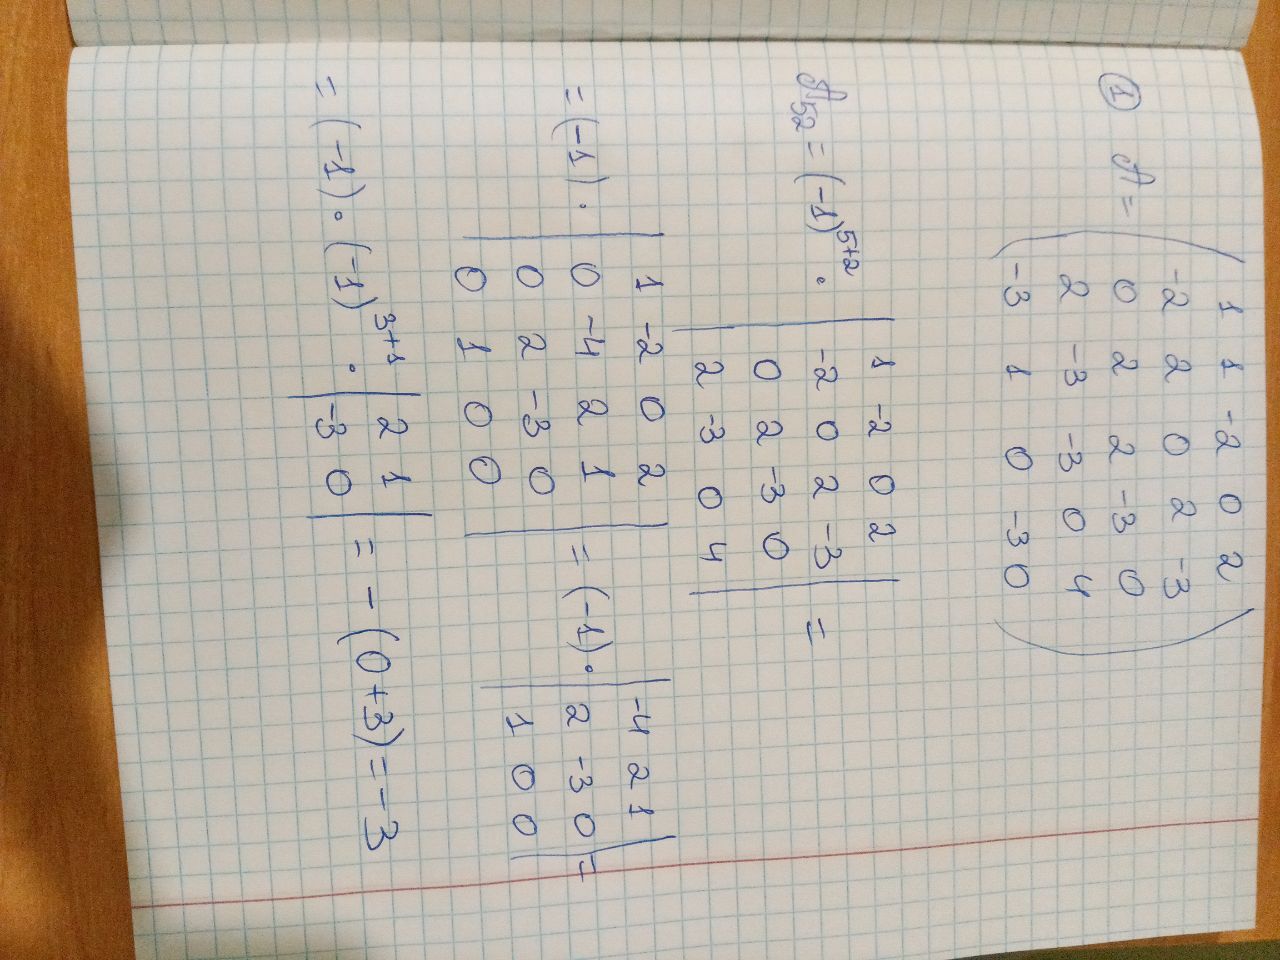 ① A = ( 1 1 -2 0 2
-2 2 0 2 -3
0 2 2 -3 0
2 -3 -3 0 4
-3 1 0 -3 0 )
A₅₂ = (-1)⁵⁺² · | 1 -2 0 2
-2 0 2 -3
0 2 -3 0
2 -3 0 4 | =
= (-1) · | 1 -2 0 2
0 -4 2 1
0 2 -3 0
0 1 0 0 | = (-1) · | -4 2 1
2 -3 0
1 0 0 | =
= (-1) · (-1)³⁺¹ · | 2 1
-3 0 | = - (0+3) = -3